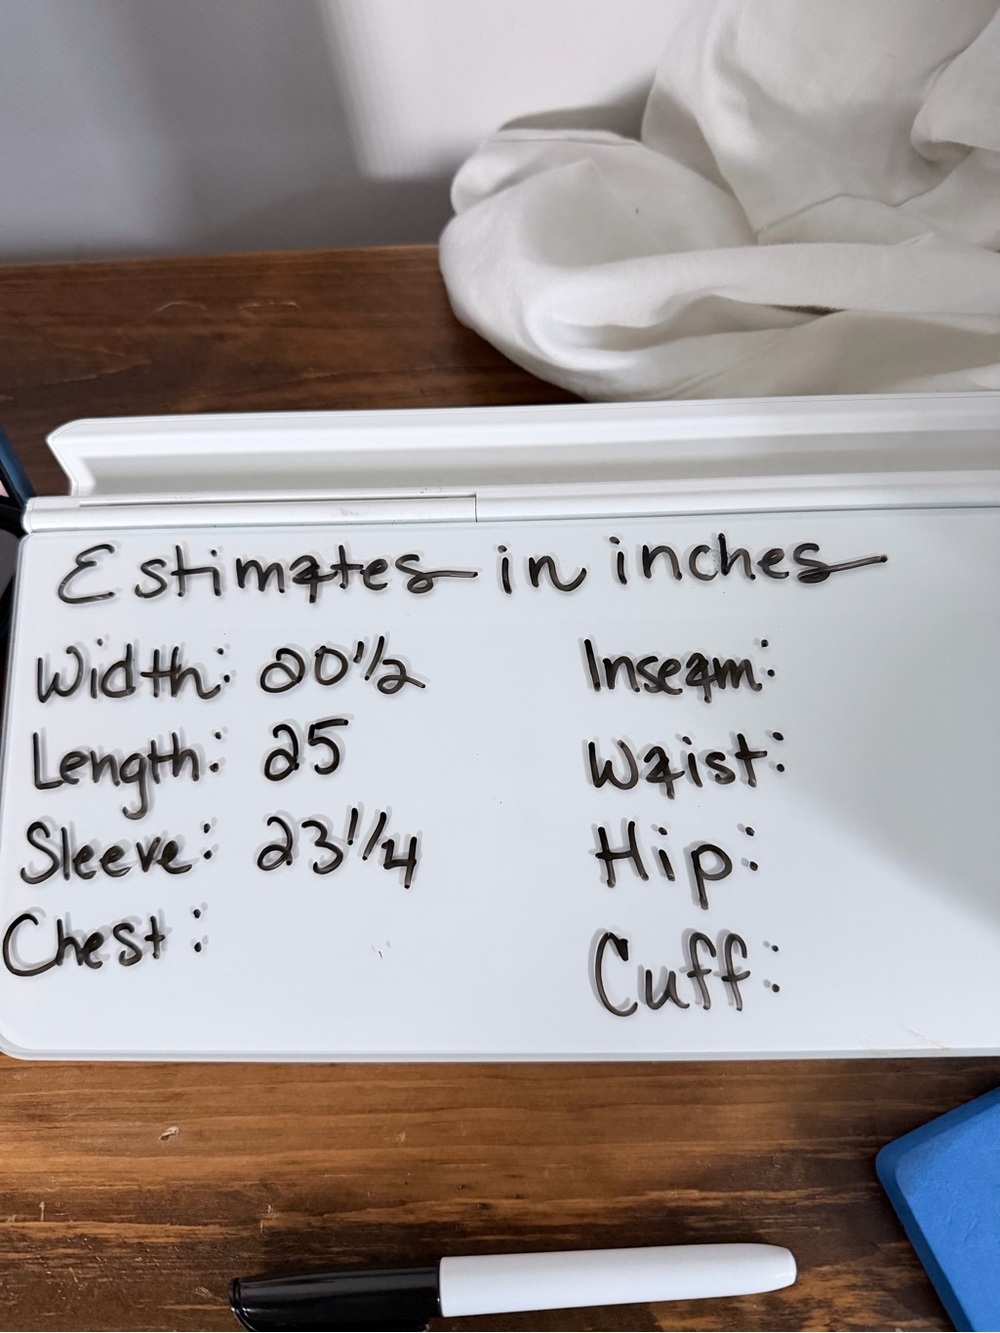 Estimates in inches
Width: 20 1/2
Length: 25
Sleeve: 23 1/4
Chest:
Inseam:
Waist:
Hip:
Cuff: